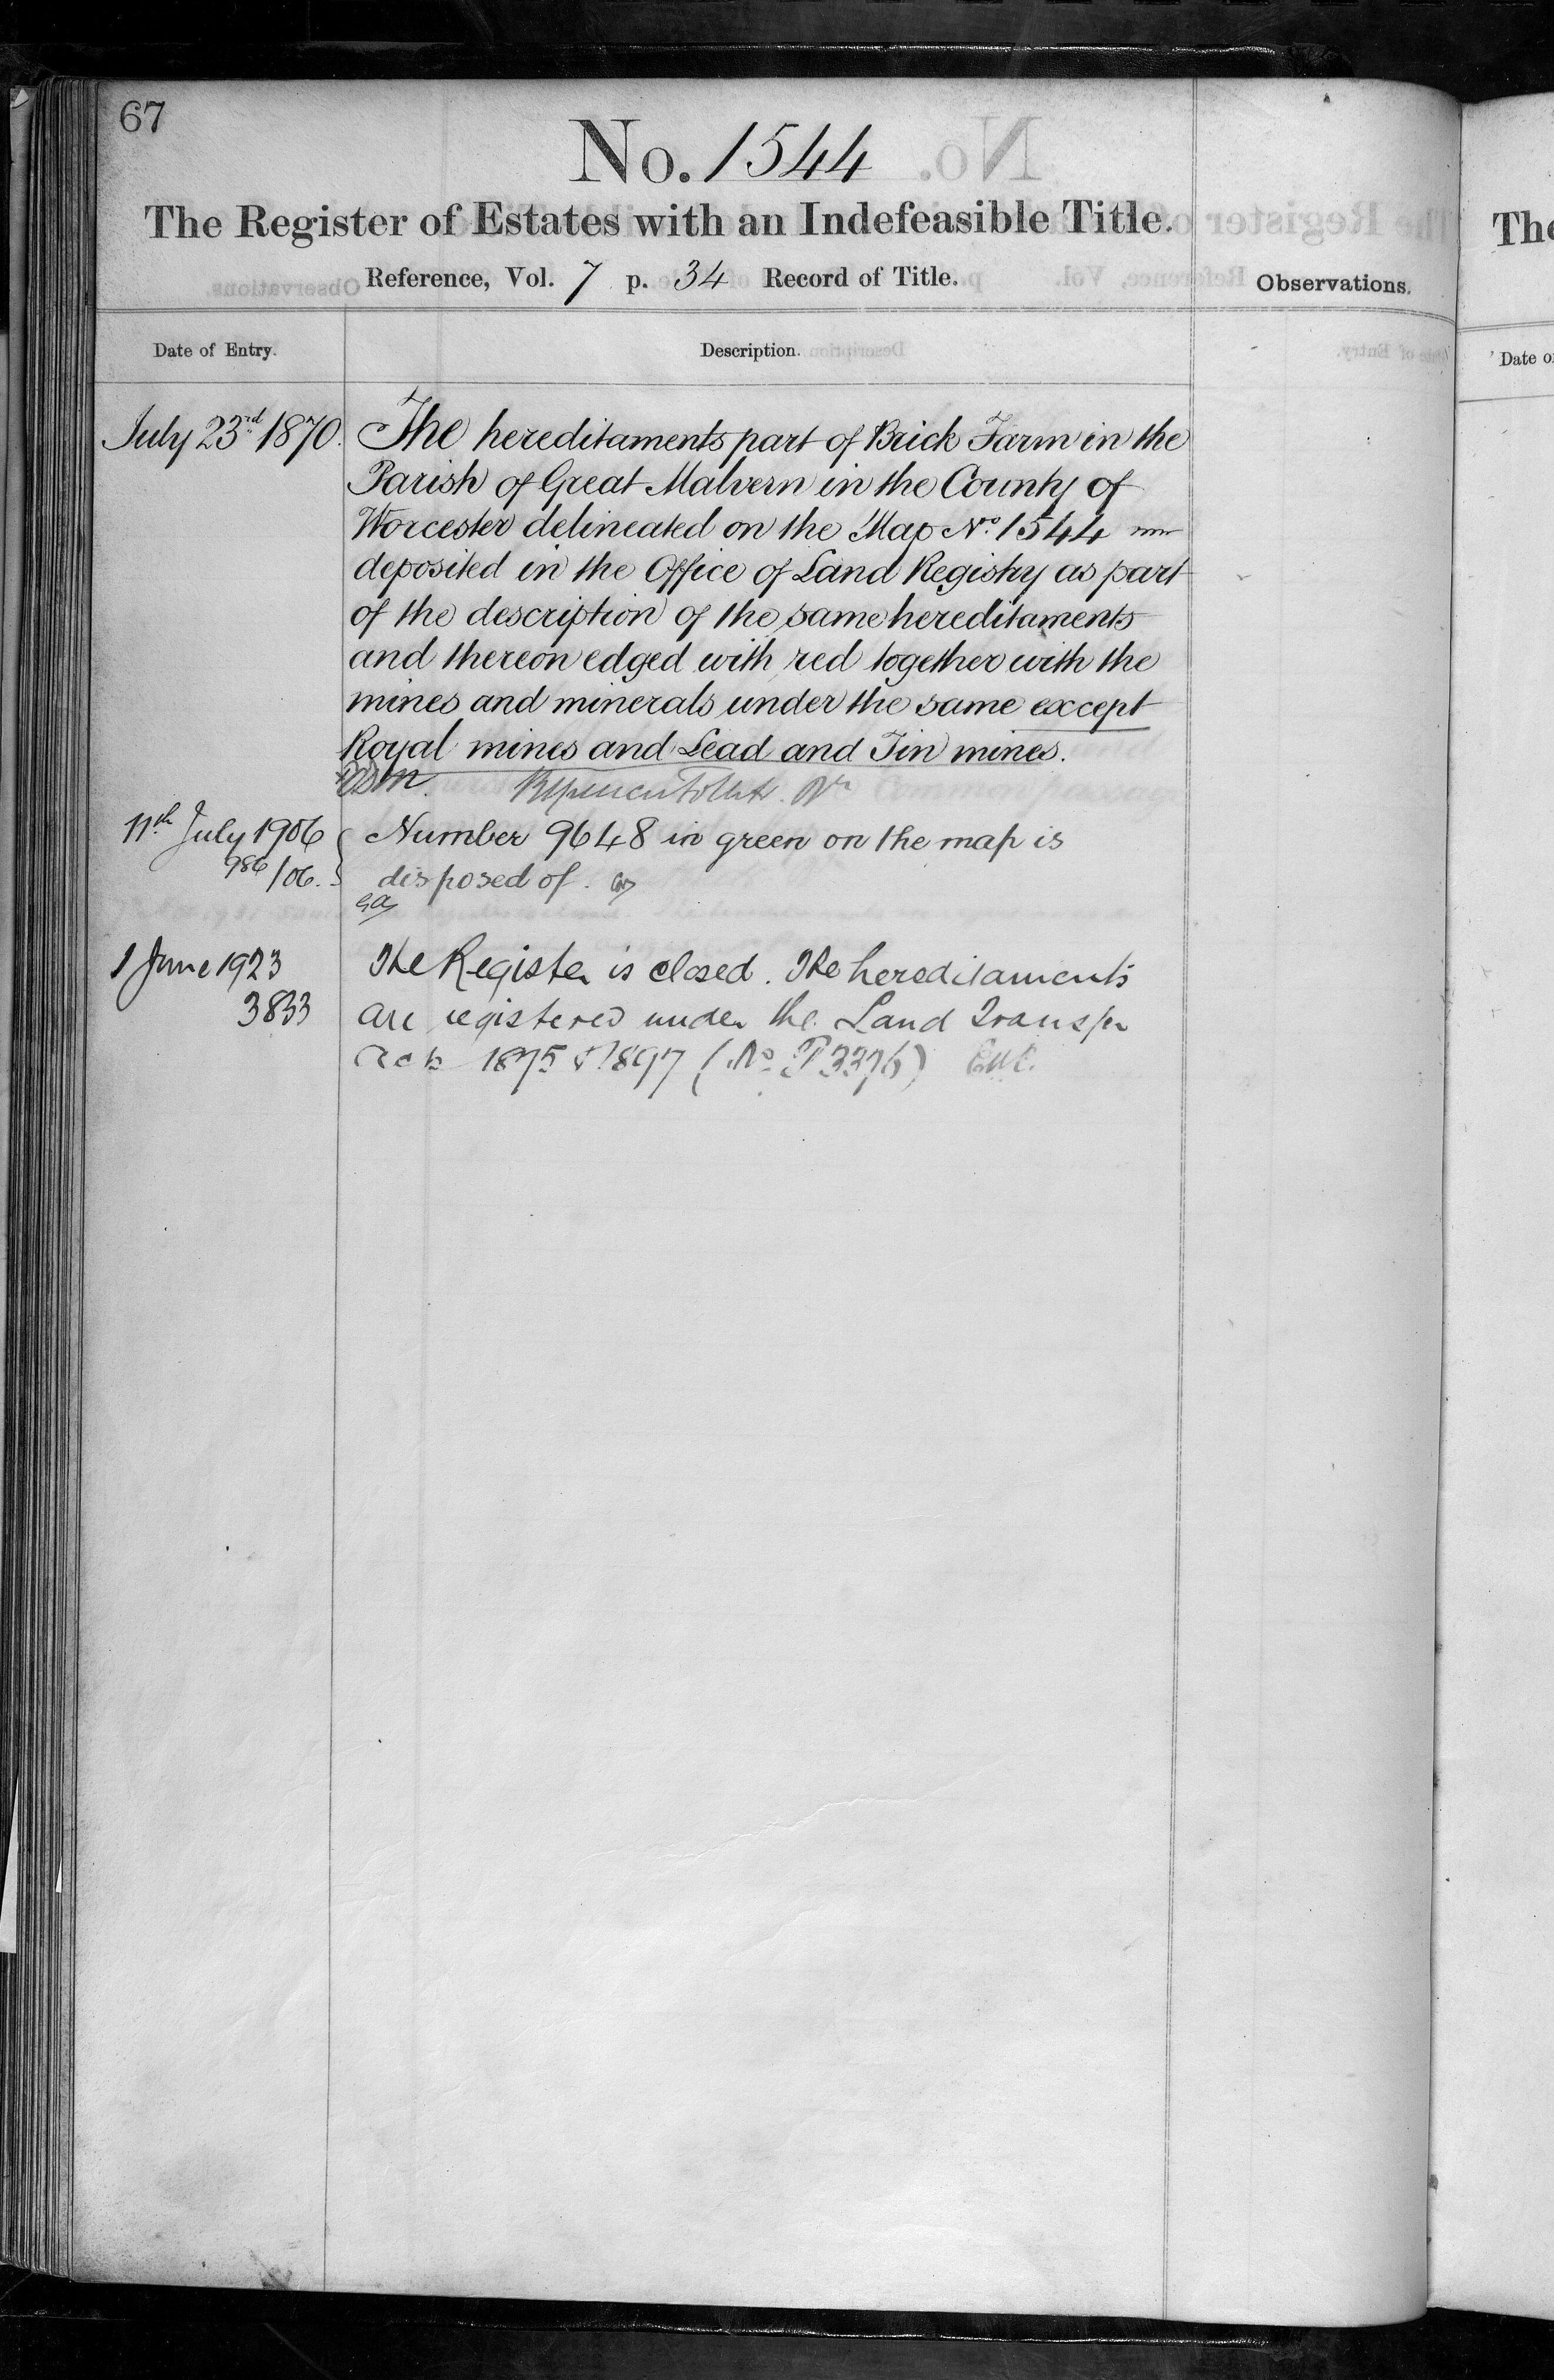 67
No. 1544
The Register of Estates with an Indefeasible Title.
Reference, Vol. 7 p. 34 Record of Title.
Observations.
Date of Entry.
Description.
July 23rd 1870.
The hereditaments part of Brick Farm in the
Parish of Great Malvern in the County of
Worcester delineated on the Map No. 1544
deposited in the Office of Land Registry as part
of the description of the same hereditaments
and thereon edged with red together with the
mines and minerals under the same except
Royal mines and Lead and Tin mines.
11th July 1906
986/06.
Number 9648 in green on the map is
disposed of.
1 June 1923
3833
The Register is closed. The hereditaments
are registered under the Land Transfer
Acts 1875 & 1897 (No. P3376)
The
Date o